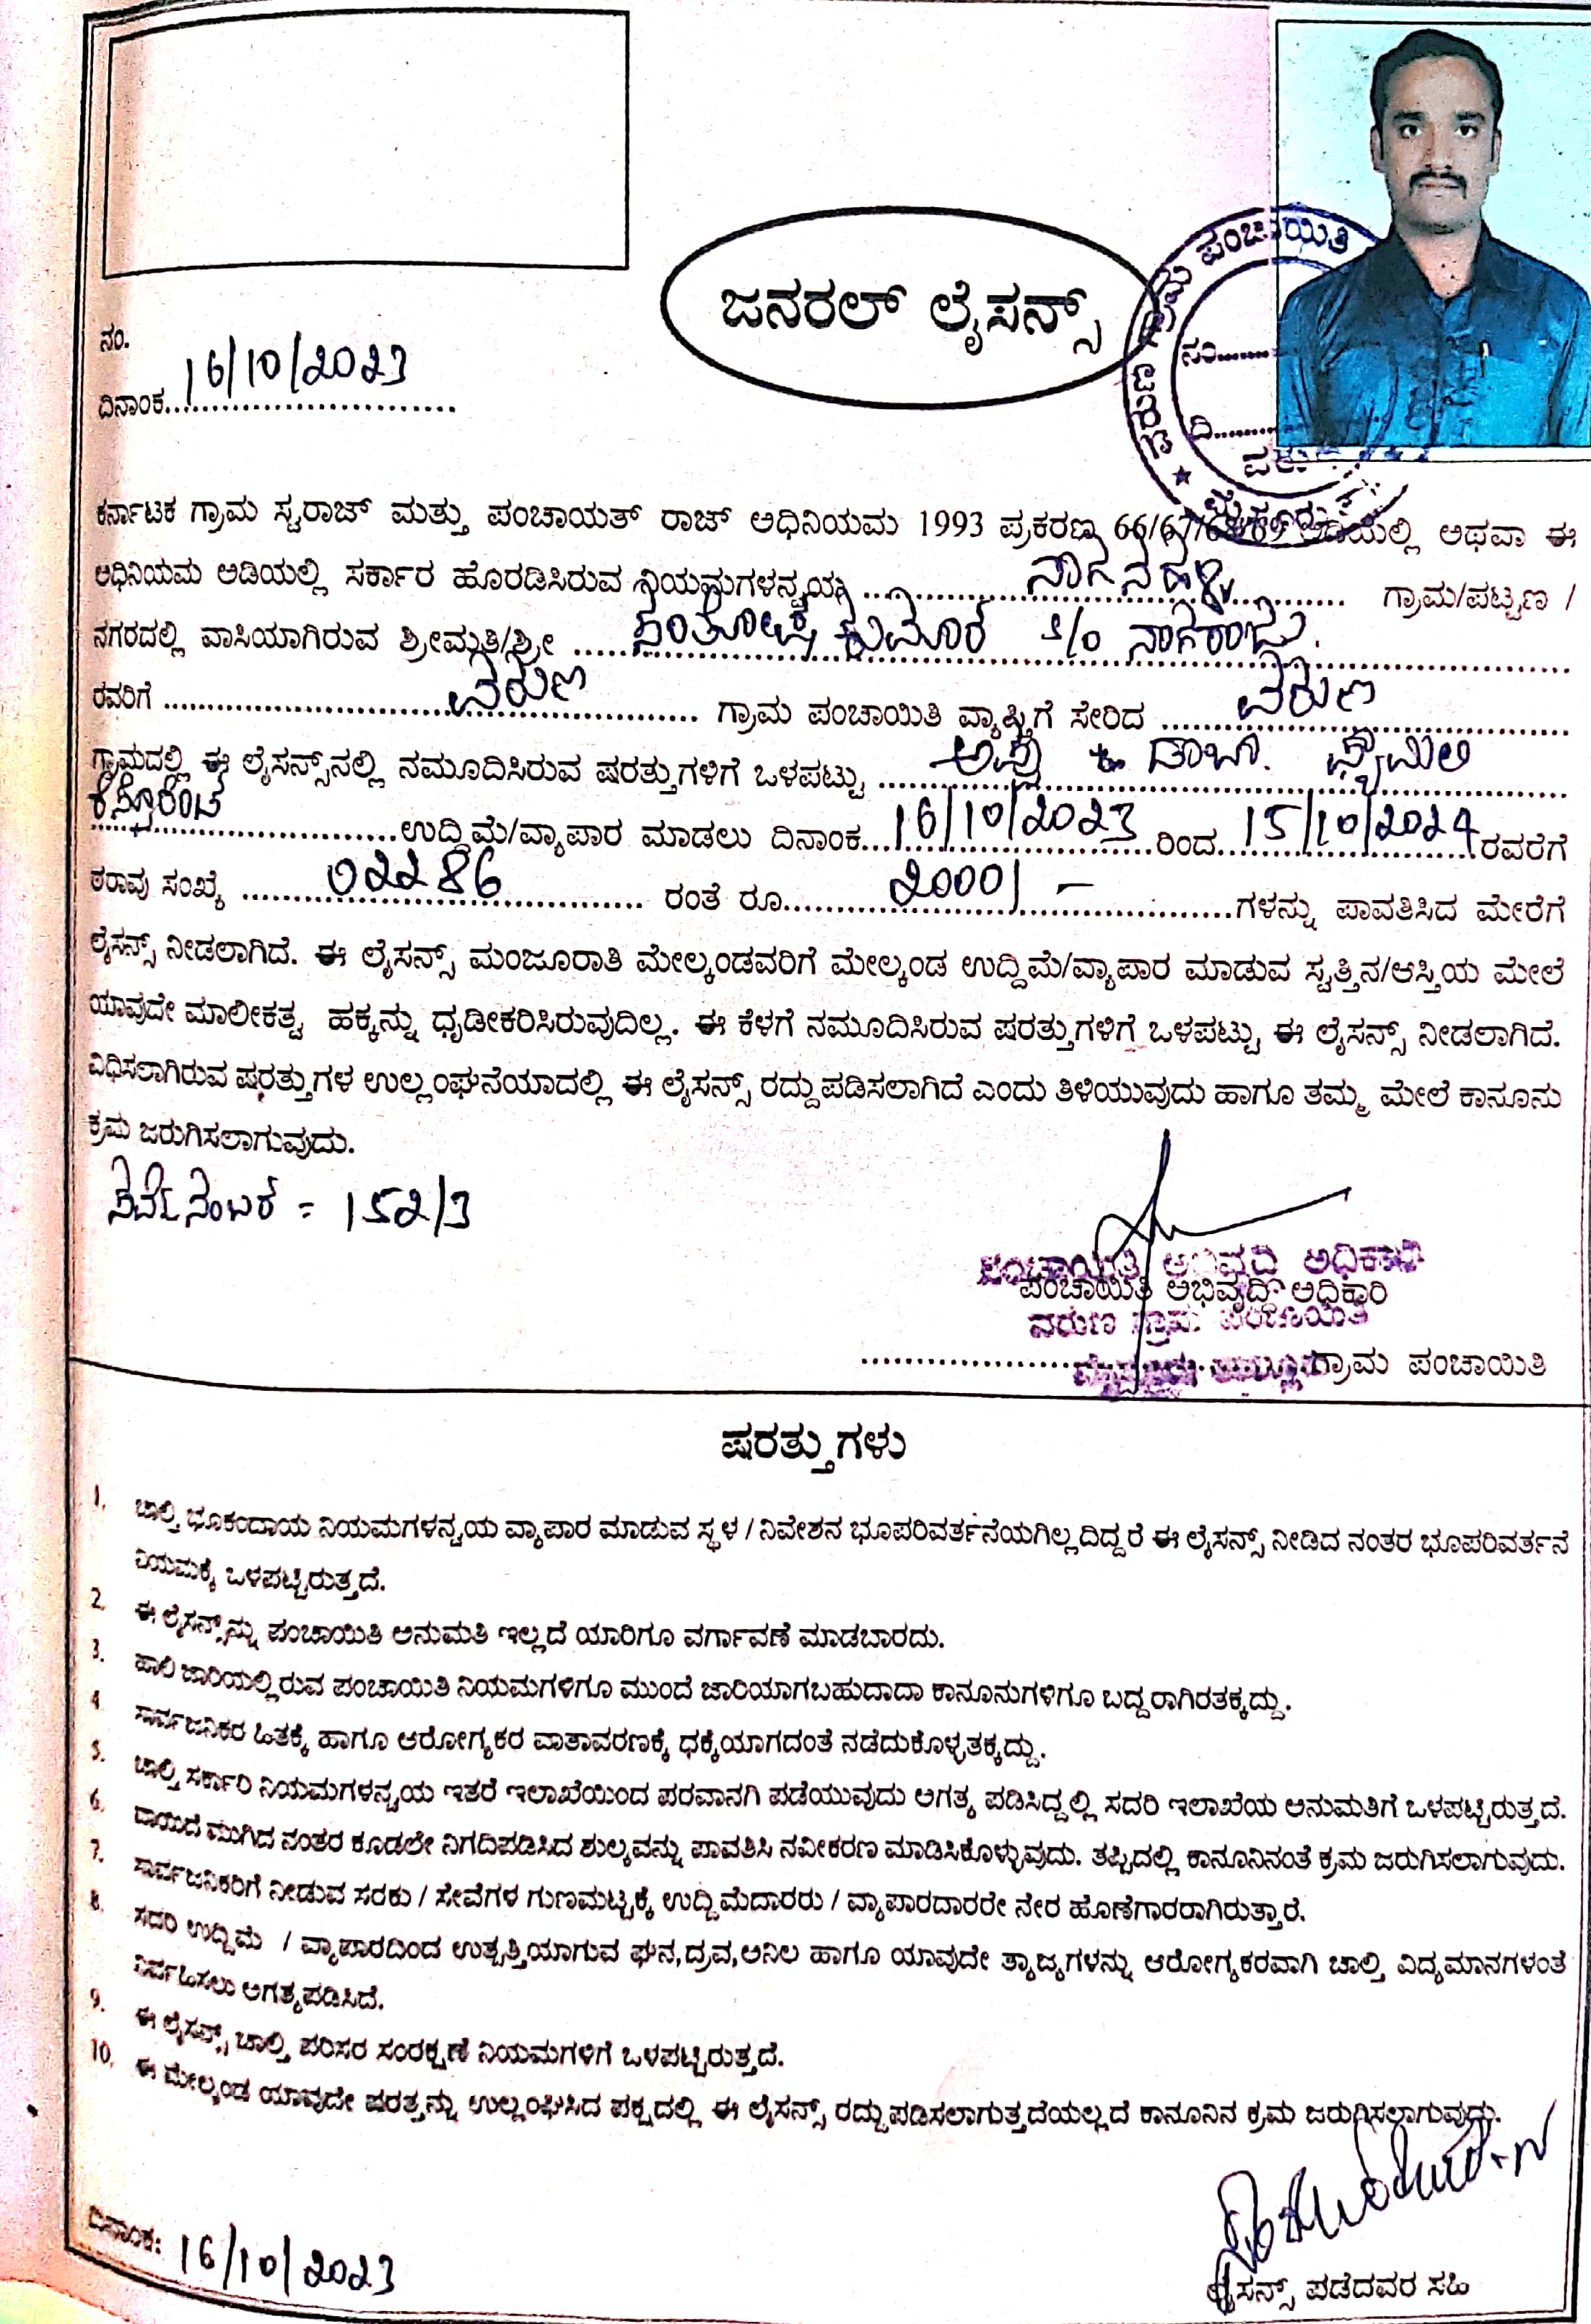 ಜನರಲ್ ಲೈಸನ್ಸ್
ಗ್ರಾಮ ಪಂಚಾಯಿತಿ
ನಂ......
ದಿ......
ನಂ.
ದಿನಾಂಕ 16/10/2023
ಕರ್ನಾಟಕ ಗ್ರಾಮ ಸ್ವರಾಜ್ ಮತ್ತು ಪಂಚಾಯತ್ ರಾಜ್ ಅಧಿನಿಯಮ 1993 ಪ್ರಕರಣ 66/67/68/69 ಅಡಿಯಲ್ಲಿ ಅಥವಾ ಈ
ಅಧಿನಿಯಮ ಅಡಿಯಲ್ಲಿ ಸರ್ಕಾರ ಹೊರಡಿಸಿರುವ ನಿಯಮಗಳನ್ವಯ ನಾಗನಹಳ್ಳಿ ಗ್ರಾಮ/ಪಟ್ಟಣ /
ನಗರದಲ್ಲಿ ವಾಸಿಯಾಗಿರುವ ಶ್ರೀಮತಿ/ಶ್ರೀ ಸಂತೋಷ್ ಕುಮಾರ s/o ನಾಗರಾಜು.
ರವರಿಗೆ ವರುಣ ಗ್ರಾಮ ಪಂಚಾಯಿತಿ ವ್ಯಾಪ್ತಿಗೆ ಸೇರಿದ ವರುಣ
ಗ್ರಾಮದಲ್ಲಿ ಈ ಲೈಸನ್ಸ್‌ನಲ್ಲಿ ನಮೂದಿಸಿರುವ ಷರತ್ತುಗಳಿಗೆ ಒಳಪಟ್ಟು ಡಾಬಾ. ಫ್ಯಾಮಿಲಿ
ಉದ್ದಿಮೆ/ವ್ಯಾಪಾರ ಮಾಡಲು ದಿನಾಂಕ 16/10/2023 ರಿಂದ 15/10/2024 ರವರೆಗೆ
ಠರಾವು ಸಂಖ್ಯೆ 02286 ರಂತೆ ರೂ 2000/- ಗಳನ್ನು ಪಾವತಿಸಿದ ಮೇರೆಗೆ
ಲೈಸನ್ಸ್ ನೀಡಲಾಗಿದೆ. ಈ ಲೈಸನ್ಸ್ ಮಂಜೂರಾತಿ ಮೇಲ್ಕಂಡವರಿಗೆ ಮೇಲ್ಕಂಡ ಉದ್ದಿಮೆ/ವ್ಯಾಪಾರ ಮಾಡುವ ಸ್ವತ್ತಿನ/ಆಸ್ತಿಯ ಮೇಲೆ
ಯಾವುದೇ ಮಾಲೀಕತ್ವ ಹಕ್ಕನ್ನು ಧೃಡೀಕರಿಸಿರುವುದಿಲ್ಲ. ಈ ಕೆಳಗೆ ನಮೂದಿಸಿರುವ ಷರತ್ತುಗಳಿಗೆ ಒಳಪಟ್ಟು ಈ ಲೈಸನ್ಸ್ ನೀಡಲಾಗಿದೆ.
ವಿಧಿಸಲಾಗಿರುವ ಷರತ್ತುಗಳ ಉಲ್ಲಂಘನೆಯಾದಲ್ಲಿ ಈ ಲೈಸನ್ಸ್ ರದ್ದುಪಡಿಸಲಾಗಿದೆ ಎಂದು ತಿಳಿಯುವುದು ಹಾಗೂ ತಮ್ಮ ಮೇಲೆ ಕಾನೂನು
ಕ್ರಮ ಜರುಗಿಸಲಾಗುವುದು.
ಸರ್ವೆ ನಂಬರ = 152/3
ಪಂಚಾಯಿತಿ ಅಭಿವೃದ್ಧಿ ಅಧಿಕಾರಿ
ಪಂಚಾಯಿತಿ ಅಭಿವೃದ್ಧಿ ಅಧಿಕಾರಿ
ವರುಣ ಗ್ರಾಮ ಪಂಚಾಯಿತಿ
ಗ್ರಾಮ ಪಂಚಾಯಿತಿ
ಷರತ್ತುಗಳು
1. ಚಾಲ್ತಿ ಭೂಕಂದಾಯ ನಿಯಮಗಳನ್ವಯ ವ್ಯಾಪಾರ ಮಾಡುವ ಸ್ಥಳ / ನಿವೇಶನ ಭೂಪರಿವರ್ತನೆಯಗಿಲ್ಲದಿದ್ದರೆ ಈ ಲೈಸನ್ಸ್ ನೀಡಿದ ನಂತರ ಭೂಪರಿವರ್ತನೆ
ನಿಯಮಕ್ಕೆ ಒಳಪಟ್ಟಿರುತ್ತದೆ.
2. ಈ ಲೈಸನ್ಸ್‌ನ್ನು ಪಂಚಾಯಿತಿ ಅನುಮತಿ ಇಲ್ಲದೆ ಯಾರಿಗೂ ವರ್ಗಾವಣೆ ಮಾಡಬಾರದು.
3. ಹಾಲಿ ಜಾರಿಯಲ್ಲಿರುವ ಪಂಚಾಯಿತಿ ನಿಯಮಗಳಿಗೂ ಮುಂದೆ ಜಾರಿಯಾಗಬಹುದಾದಾ ಕಾನೂನುಗಳಿಗೂ ಬದ್ದರಾಗಿರತಕ್ಕದ್ದು.
4. ಸಾರ್ವಜನಿಕರ ಹಿತಕ್ಕೆ ಹಾಗೂ ಆರೋಗ್ಯಕರ ವಾತಾವರಣಕ್ಕೆ ಧಕ್ಕೆಯಾಗದಂತೆ ನಡೆದುಕೊಳ್ಳತಕ್ಕದ್ದು.
5. ಚಾಲ್ತಿ ಸರ್ಕಾರಿ ನಿಯಮಗಳನ್ವಯ ಇತರೆ ಇಲಾಖೆಯಿಂದ ಪರವಾನಗಿ ಪಡೆಯುವುದು ಅಗತ್ಯ ಪಡಿಸಿದ್ದಲ್ಲಿ ಸದರಿ ಇಲಾಖೆಯ ಅನುಮತಿಗೆ ಒಳಪಟ್ಟಿರುತ್ತದೆ.
6. ವಾಯಿದೆ ಮುಗಿದ ನಂತರ ಕೂಡಲೇ ನಿಗದಿಪಡಿಸಿದ ಶುಲ್ಕವನ್ನು ಪಾವತಿಸಿ ನವೀಕರಣ ಮಾಡಿಸಿಕೊಳ್ಳುವುದು. ತಪ್ಪಿದಲ್ಲಿ ಕಾನೂನಿನಂತೆ ಕ್ರಮ ಜರುಗಿಸಲಾಗುವುದು.
7. ಸಾರ್ವಜನಿಕರಿಗೆ ನೀಡುವ ಸರಕು / ಸೇವೆಗಳ ಗುಣಮಟ್ಟಕ್ಕೆ ಉದ್ದಿಮೆದಾರರು / ವ್ಯಾಪಾರದಾರರೇ ನೇರ ಹೊಣೆಗಾರರಾಗಿರುತ್ತಾರೆ.
8. ಸದರಿ ಉದ್ದಿಮೆ / ವ್ಯಾಪಾರದಿಂದ ಉತ್ಪತ್ತಿಯಾಗುವ ಘನ,ದ್ರವ,ಅನಿಲ ಹಾಗೂ ಯಾವುದೇ ತ್ಯಾಜ್ಯಗಳನ್ನು ಆರೋಗ್ಯಕರವಾಗಿ ಚಾಲ್ತಿ ವಿದ್ಯಮಾನಗಳಂತೆ
ನಿರ್ವಹಿಸಲು ಅಗತ್ಯಪಡಿಸಿದೆ.
9. ಈ ಲೈಸನ್ಸ್ ಚಾಲ್ತಿ ಪರಿಸರ ಸಂರಕ್ಷಣೆ ನಿಯಮಗಳಿಗೆ ಒಳಪಟ್ಟಿರುತ್ತದೆ.
10. ಈ ಮೇಲ್ಕಂಡ ಯಾವುದೇ ಷರತ್ತನ್ನು ಉಲ್ಲಂಘಿಸಿದ ಪಕ್ಷದಲ್ಲಿ ಈ ಲೈಸನ್ಸ್ ರದ್ದುಪಡಿಸಲಾಗುತ್ತದೆಯಲ್ಲದೆ ಕಾನೂನಿನ ಕ್ರಮ ಜರುಗಿಸಲಾಗುವುದು.
ದಿನಾಂಕ: 16/10/2023
ಲೈಸನ್ಸ್ ಪಡೆದವರ ಸಹಿ